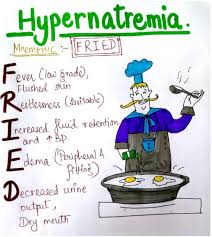 Hypernatremia.
Mnemonic :- FRIED
Fever (low grade),
Flushed skin
Restlessness (Irritable)
Increased fluid retention
and ↑ BP.
Edema (Peripheral &
Pitting)
Decreased urine
output,
Dry mouth